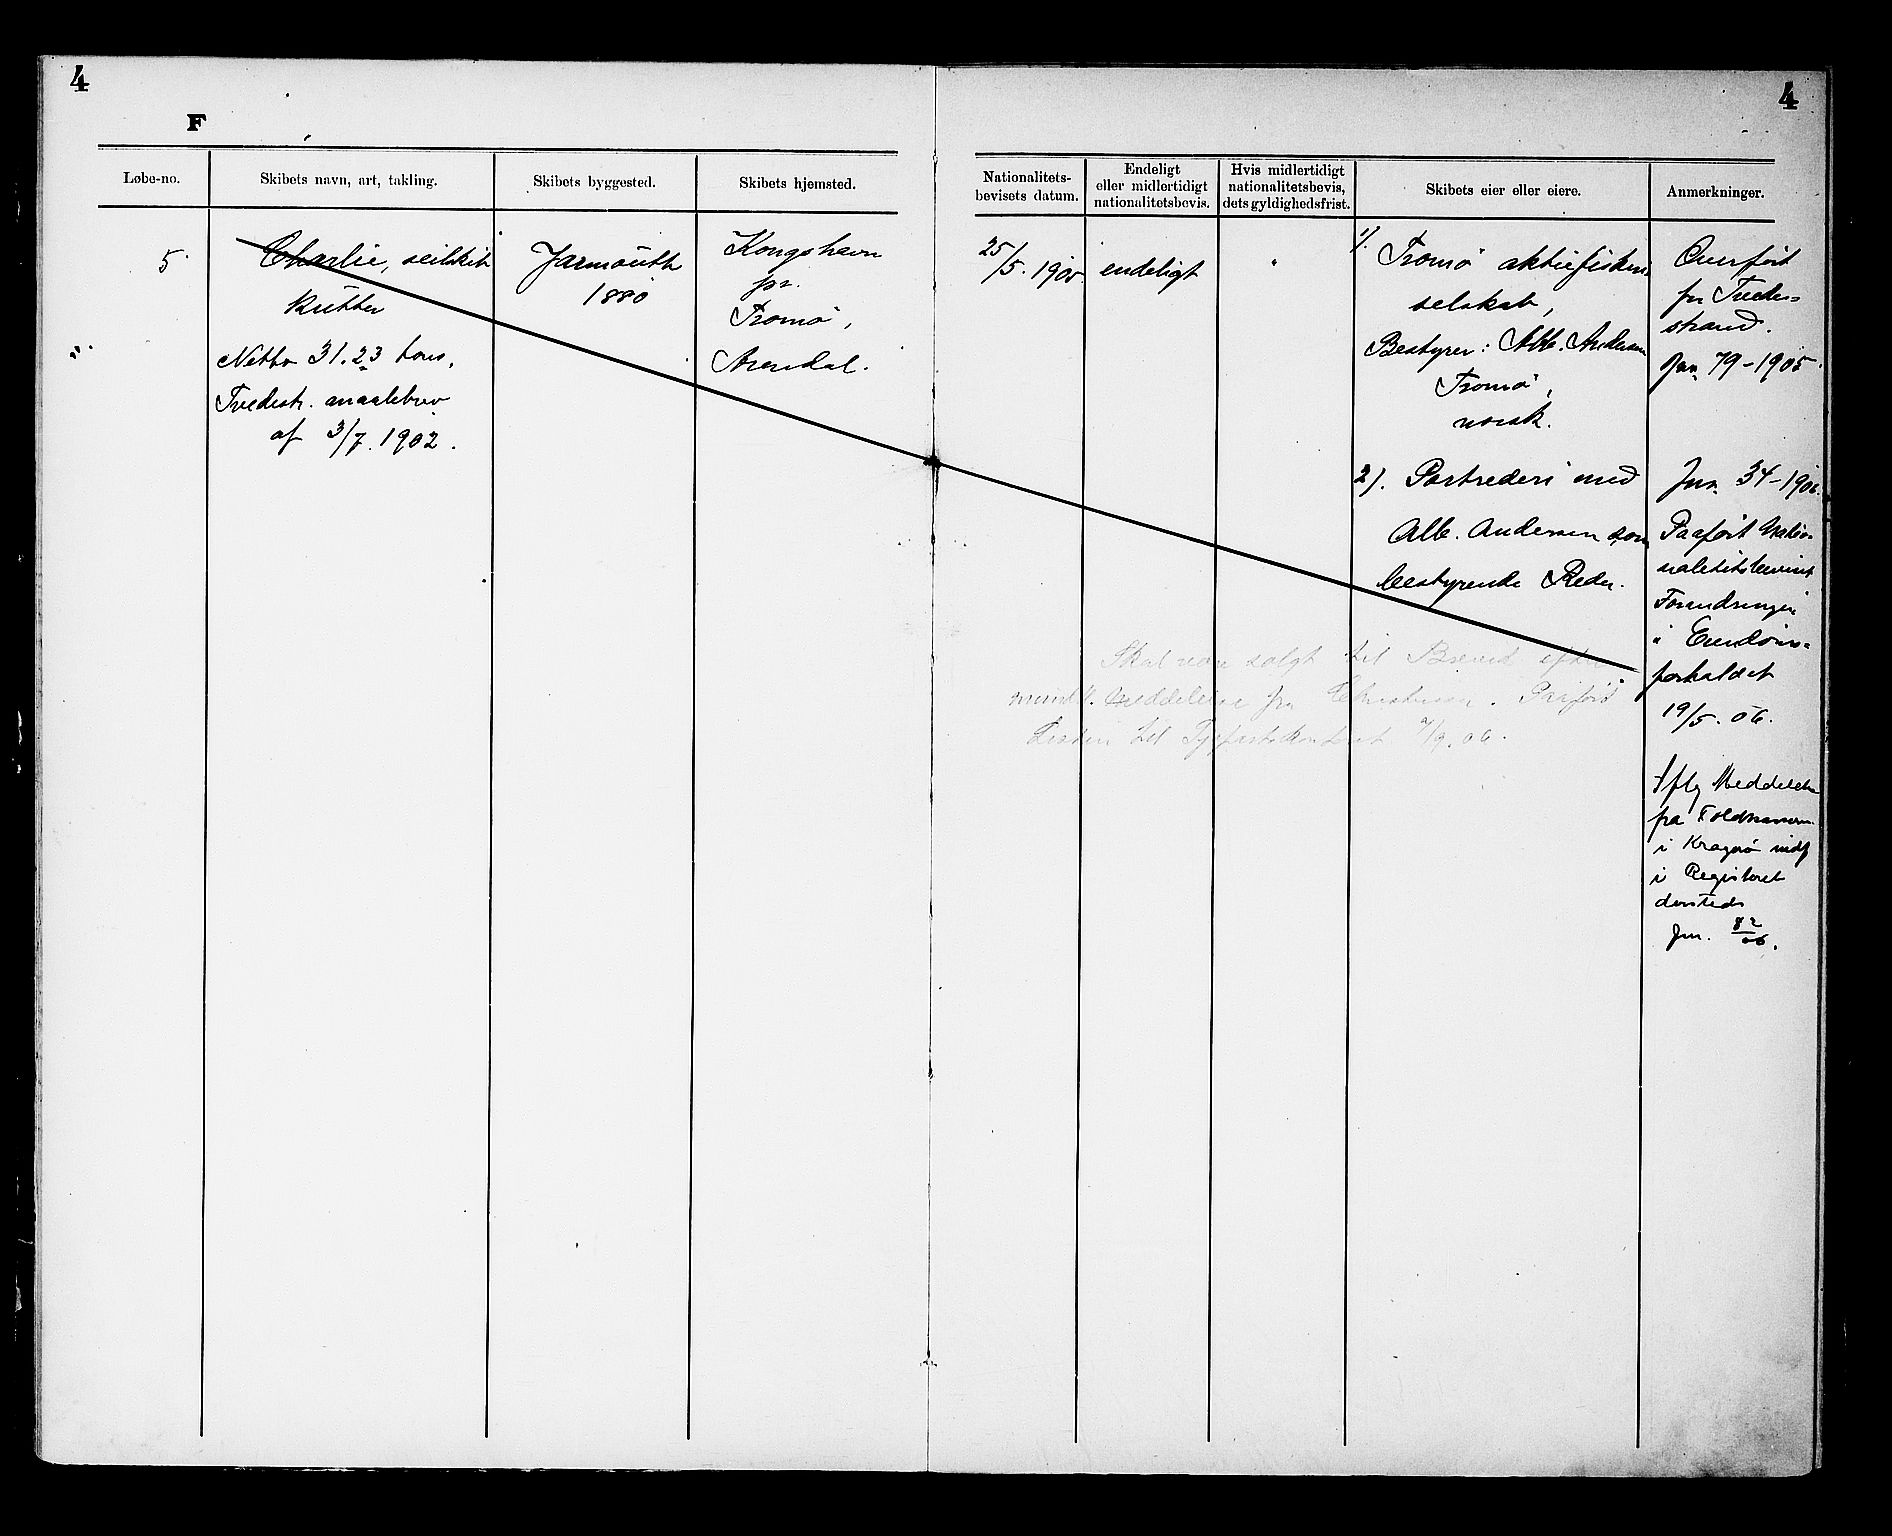 4
F
Løbe-no.
Skibets navn, art, takling.
Skibets byggested.
Skibets hjemsted.
5
Charlie, seilskib
kutter
Netto 31.23 tons.
Tvedestr. maalebrev
af 3/7. 1902.
Jarmouth
1880
Kongshavn
pr.
Tromö,
Arendal.
4
Nationalitets-
bevisets datum.
Endeligt
eller midlertidigt
nationalitetsbevis.
Hvis midlertidigt
nationalitetsbevis,
dets gyldighedsfrist.
Skibets eier eller eiere.
Anmerkninger.
25/5. 1905
endeligt
"
1/. Tromö aktiefiskeri
selskab,
Bestyrer: Alb. Andersen
Tromö,
norsk.
2/. Partrederi med
Alb. Andersen som
bestyrende Reder.
Skal være solgt til Brevik efter
mundtl. Meddelelse fra Christensen. Paaført
Listen til 7/9. 06.
Overført
fra Tvede-
strand.
Jnr. 79-1905.
Jnr. 34-1906.
Paaført Natio-
nalitetsbeviset
Forandringen
i Eiendoms-
forholdet
19/5. 06.
Iflg Meddelelse
fra Toldkammeret
i Kragerø indf
i Registeret
dersteds
Jnr. 82/06.